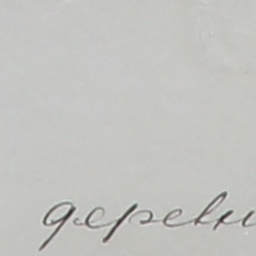 деревн